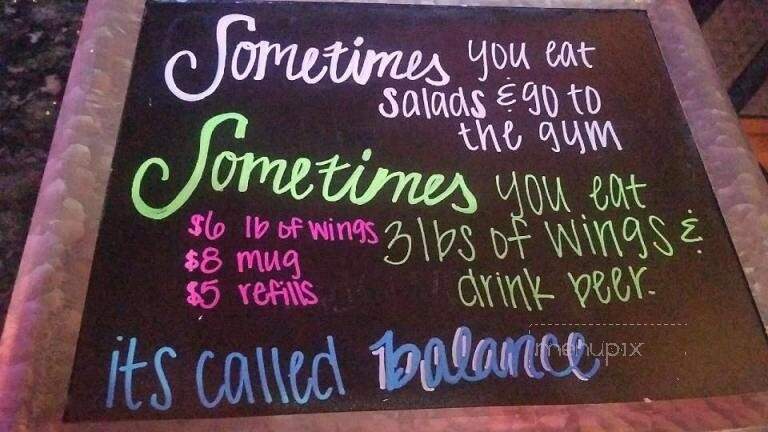 Sometimes you eat
salads & go to
the gym
Sometimes you eat
$6 lb of wings
$8 mug
$5 refills
3lbs of wings &
drink beer.
its called balance
menupix